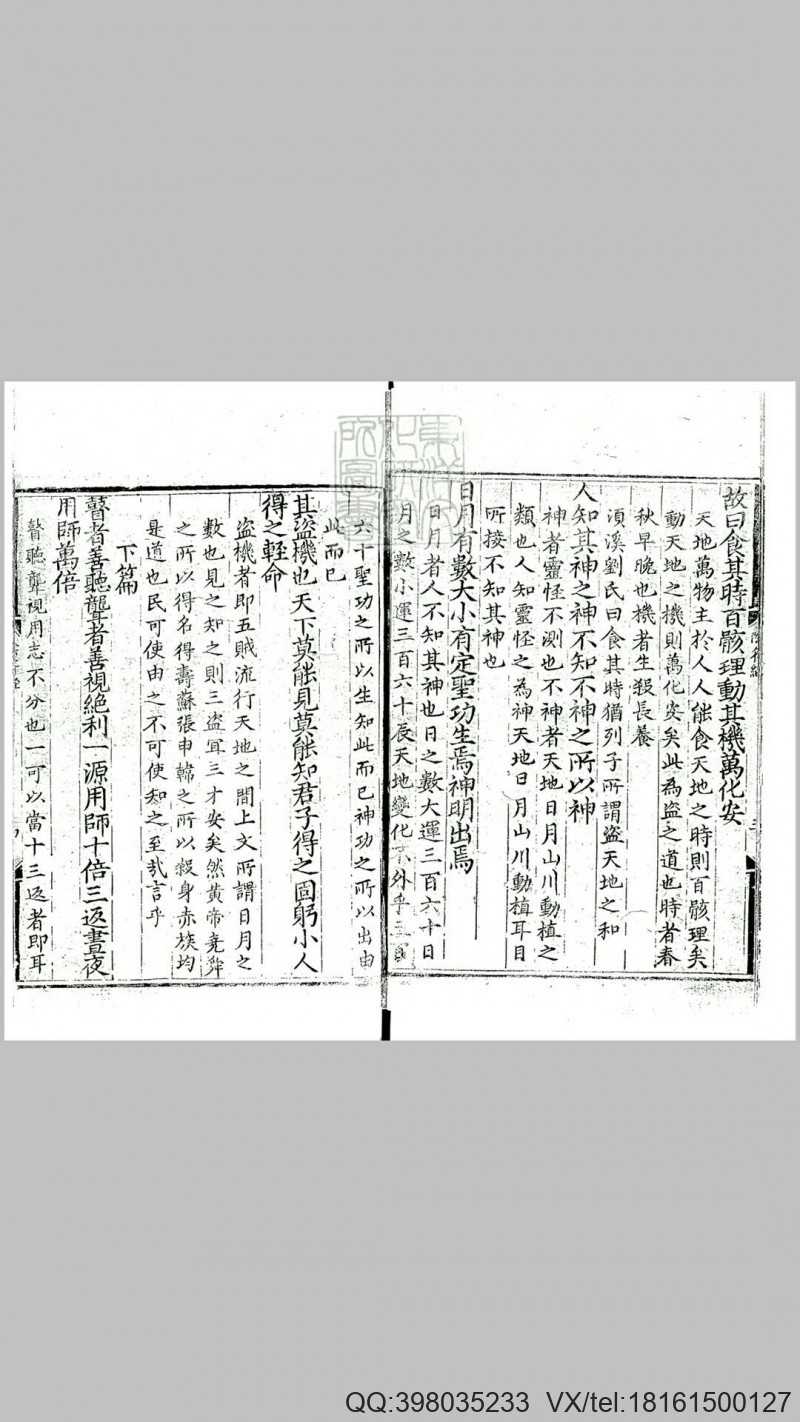 故曰食其時百骸理動其機萬化安
天地萬物主於人人能食天地之時則百骸理矣
動天地之機則萬化安矣此為盜之道也時者春
秋早晚也機者生殺長養
湏溪劉氏曰食其時猶列子所謂盜天地之和
人知其神之神不知不神之所以神
神者靈怪不測也不神者天地日月山川動植之
類也人知靈怪之為神天地日月山川動植耳目
所接不知其神也
日月有數大小有定聖功生焉神明出焉
日月者人不知其神也日之數大運三百六十日
月之數小運三百六十辰天地變化不外乎三百
六十聖功之所以生知此而已神功之所以出由
此而已
其盜機也天下莫能見莫能知君子得之固躬小人
得之輕命
盜機者即五賊流行天地之間上文所謂日月之
數也見之知之則三盜冝三才安矣然黃帝堯舜
之所以得名得壽蘇張申韓之所以殺身赤族均
是道也民可使由之不可使知之至哉言乎
下篇
瞽者善聽聾者善視絕利一源用師十倍三返晝夜
用師萬倍
瞽聽聾視用志不分也一可以當十三返者即耳
QQ:398035233 VX/tel:18161500127